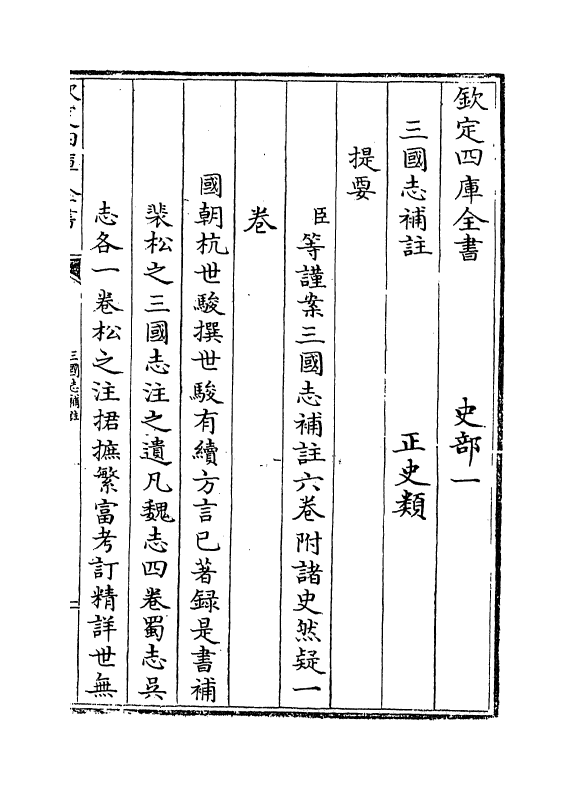 欽定四庫全書 史部一
三國志補註 正史類
提要
臣等謹案三國志補註六卷附諸史然疑一
卷
國朝杭世駿撰世駿有續方言已著録是書補
裴松之三國志注之遺凡魏志四卷蜀志吳
志各一卷松之注捃摭繁富考訂精詳世無
欽定四庫全書
三國志補註